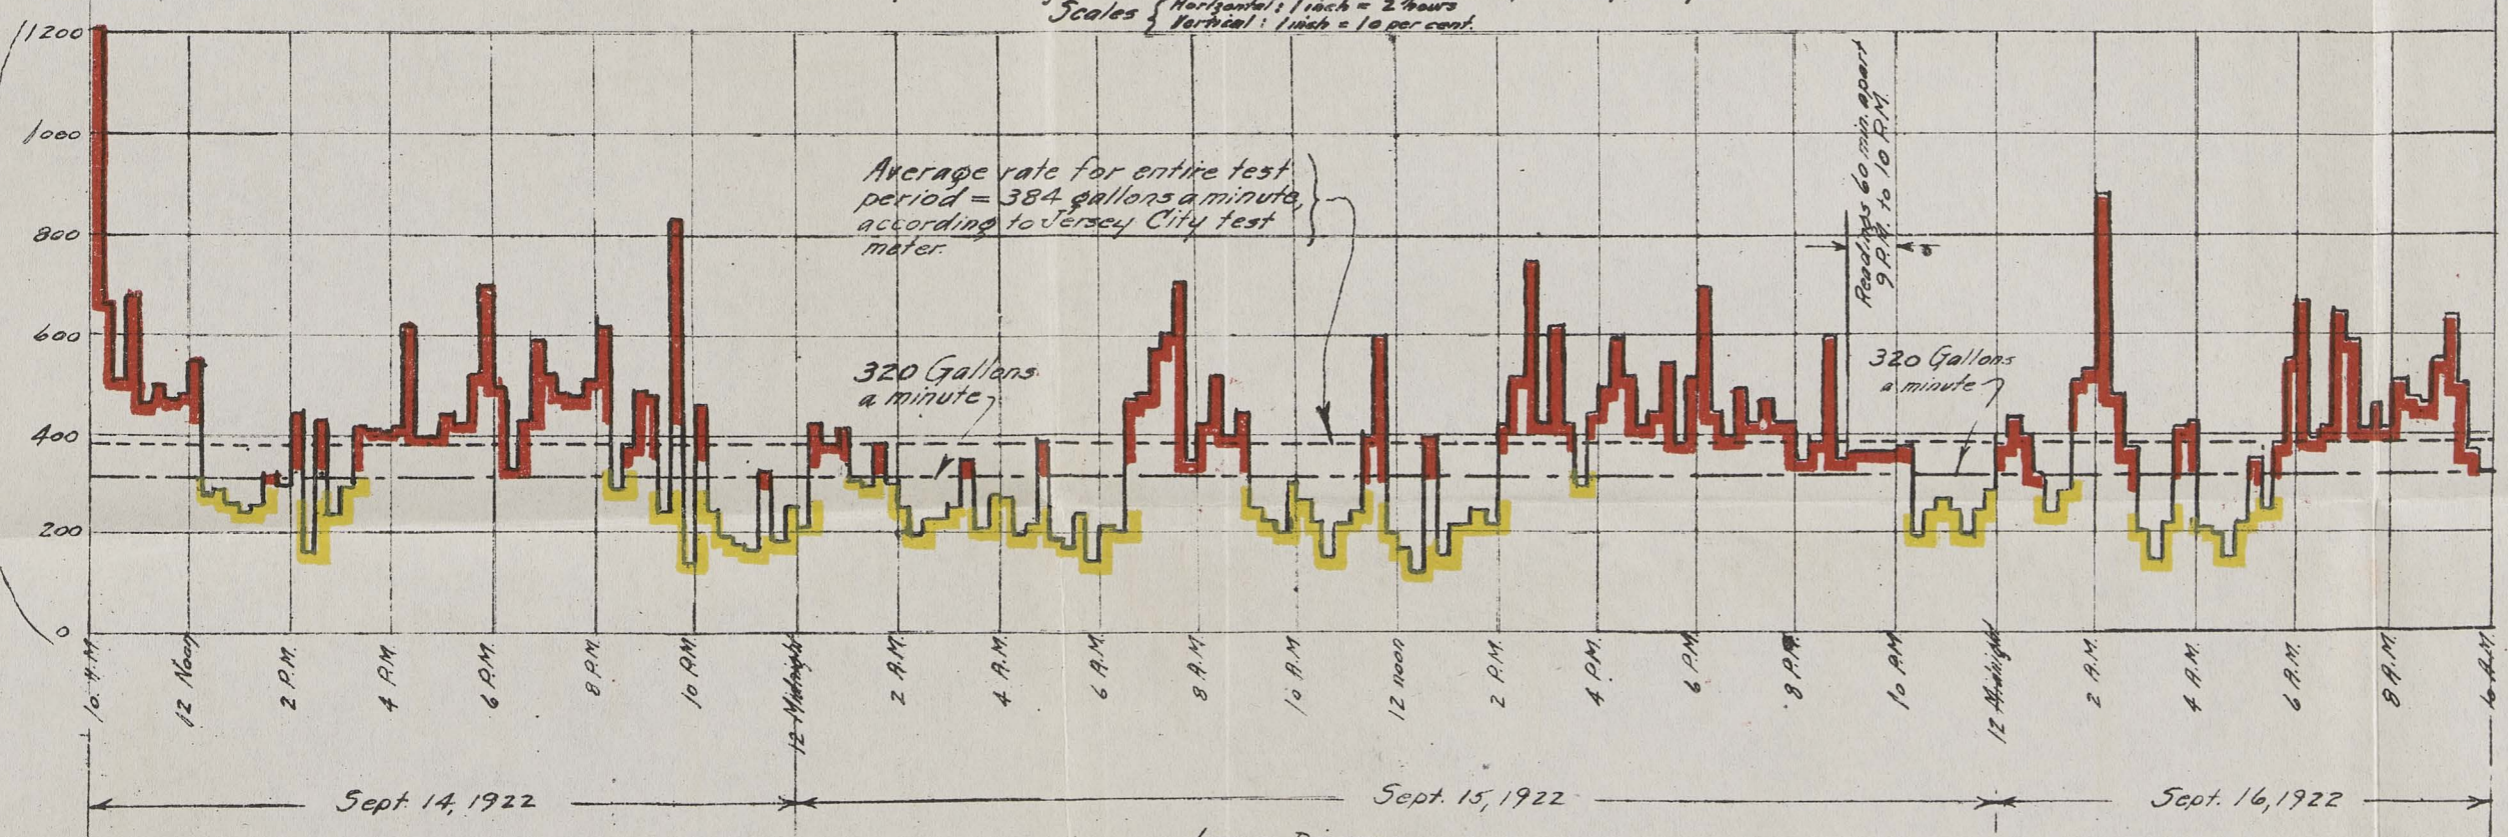 Scales { Horizontal: 1 inch = 2 hours
Vertical: 1 inch = 10 per cent.
1200
1000
800
600
400
200
0
Average rate for entire test
period = 384 gallons a minute,
according to Jersey City test
meter.
320 Gallons
a minute
Readings 60 min. apart
9 P.M. to 10 P.M.
320 Gallons
a minute
10 A.M.
12 Noon
2 P.M.
4 P.M.
6 P.M.
8 P.M.
10 P.M.
12 Midnight
2 A.M.
4 A.M.
6 A.M.
8 A.M.
10 A.M
12 noon
2 P.M.
4 P.M.
6 P.M.
8 P.M.
10 P.M
12 Midnight
2 A.M.
4 A.M.
6 A.M.
8 A.M.
10 A.M.
Sept. 14, 1922
Sept. 15, 1922
Sept. 16, 1922